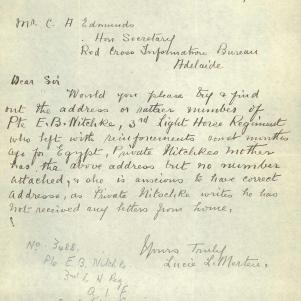 Mr. C. A Edmunds
Hon Secretary
Red Cross Information Bureau
Adelaide
Dear Sir
Would you please try & find
out the address or rather number of
Pte E. B. Nitchke, 3rd Light Horse Regiment
who left with reinforcements some months
ago for Egypt, Private Nitchkes mother
has the above address but no number
attached, & she is anxious to have correct
address, as Private Nitschke writes he has
not received any letters from home.
Yours truly
Lucie L.
No. 3488.
Pte E. B. Nitchke
3rd L H Reg